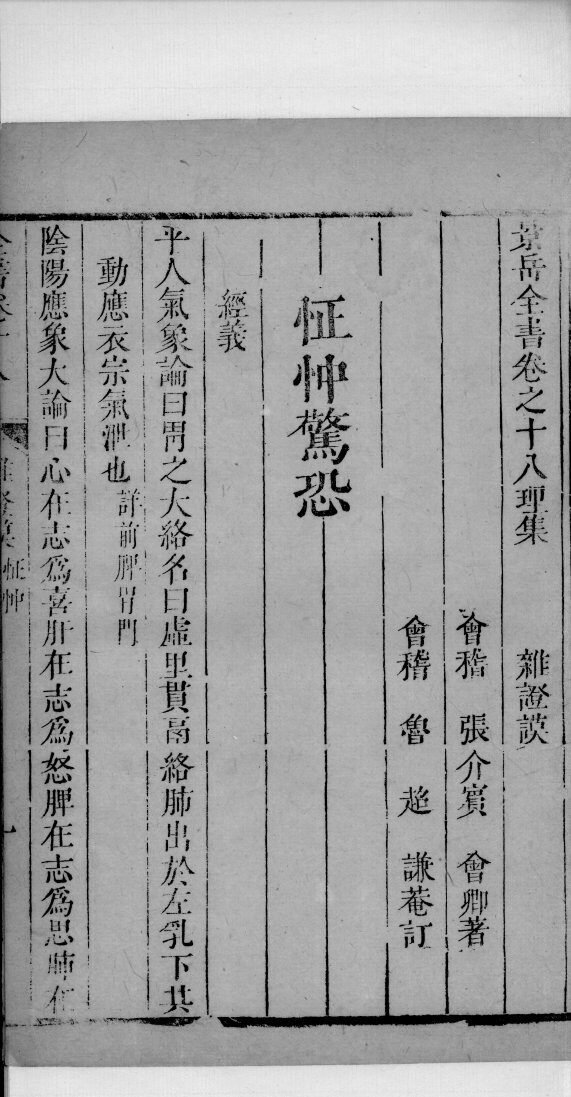 景岳全書卷之十八理集　雜證謨
會稽　張介賓　會卿著
會稽　魯　超　謙菴訂
怔忡驚恐
經義
平人氣象論曰胃之大絡名曰虛里貫鬲絡肺出於左乳下其
動應衣宗氣泄也詳前脾胃門
陰陽應象大論曰心在志爲喜肝在志爲怒脾在志爲思肺在
全書卷十八　雜證謨　怔忡